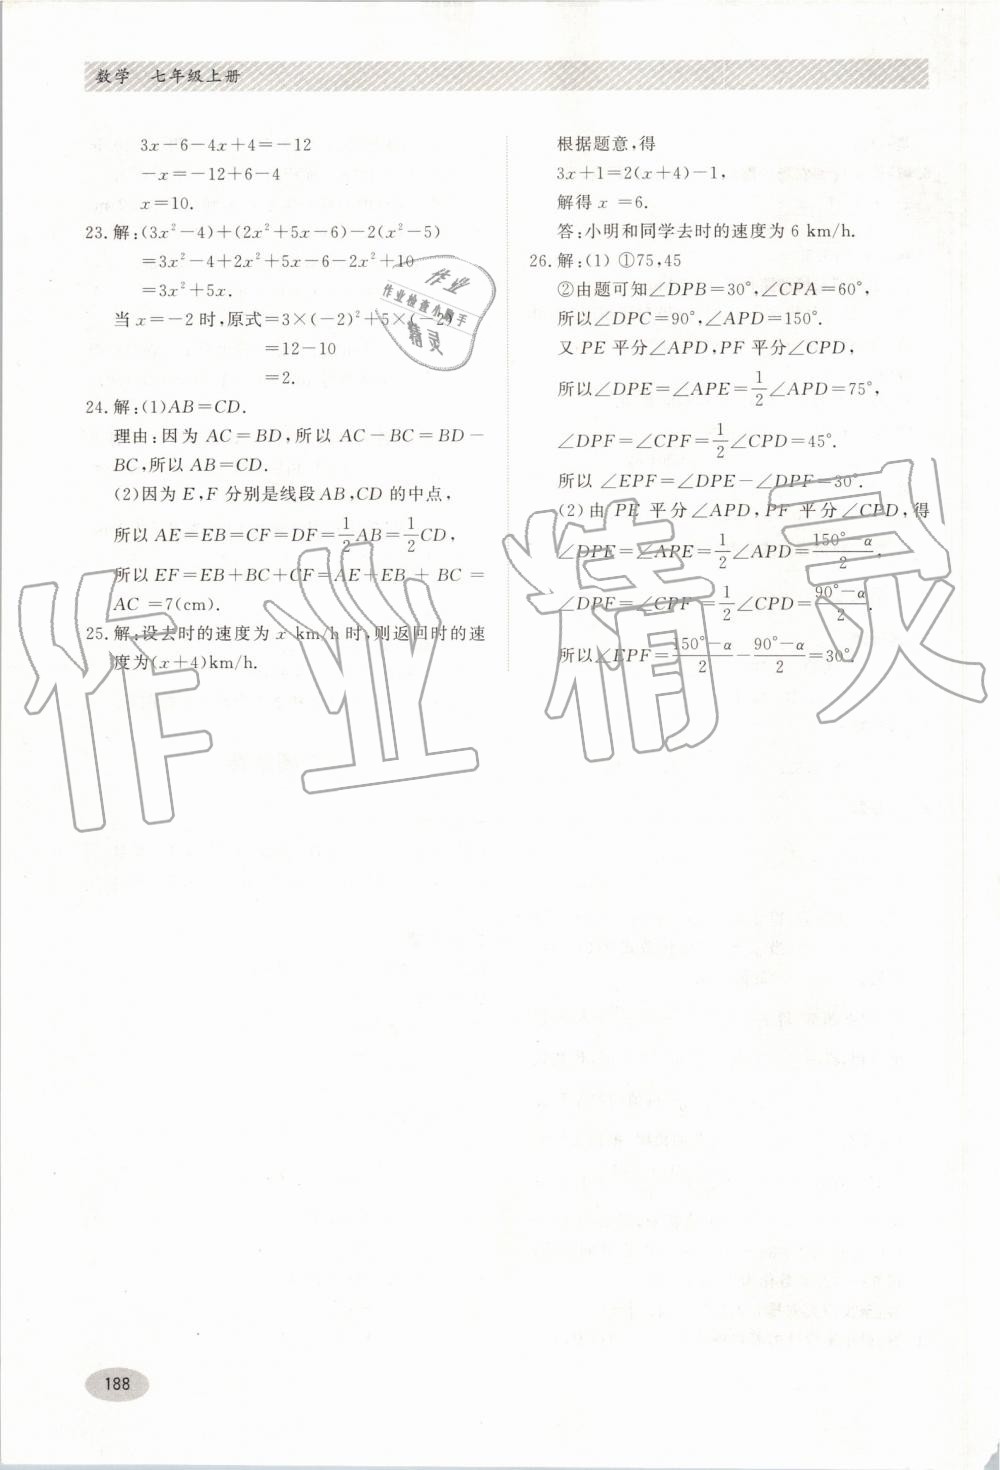 数学 七年级上册
3x－6－4x＋4＝－12
－x＝－12＋6－4
x＝10.
23. 解:(3x²－4)＋(2x²＋5x－6)－2(x²－5)
＝3x²－4＋2x²＋5x－6－2x²＋10
＝3x²＋5x.
当 x＝－2 时,原式＝3×(－2)²＋5×(－2)
＝12－10
＝2.
24. 解:(1)AB＝CD.
理由:因为 AC＝BD,所以 AC－BC＝BD－
BC,所以 AB＝CD.
(2)因为 E,F 分别是线段 AB,CD 的中点,
所以 AE＝EB＝CF＝DF＝1/2AB＝1/2CD,
所以 EF＝EB＋BC＋CF＝AE＋EB ＋ BC ＝
AC ＝7(cm).
25. 解:设去时的速度为 x km/h 时,则返回时的速
度为(x＋4)km/h.
根据题意,得
3x＋1＝2(x＋4)－1,
解得 x ＝6.
答:小明和同学去时的速度为 6 km/h.
26. 解:(1) ①75,45
②由题可知∠DPB＝30°,∠CPA＝60°,
所以∠DPC＝90°,∠APD＝150°.
又 PE 平分∠APD,PF 平分∠CPD,
所以∠DPE＝∠APE＝1/2∠APD＝75°,
∠DPF＝∠CPF＝1/2∠CPD＝45°.
所以 ∠EPF＝∠DPE－∠DPF＝30°.
(2) 由 PE 平分∠APD,PF 平分∠CPD,得
∠DPE＝∠APE＝1/2∠APD＝(150°－α)/2,
∠DPF＝∠CPF＝1/2∠CPD＝(90°－α)/2.
所以∠EPF＝(150°－α)/2－(90°－α)/2＝30°.
作业
作业检查小助手
精灵
作业精灵
188